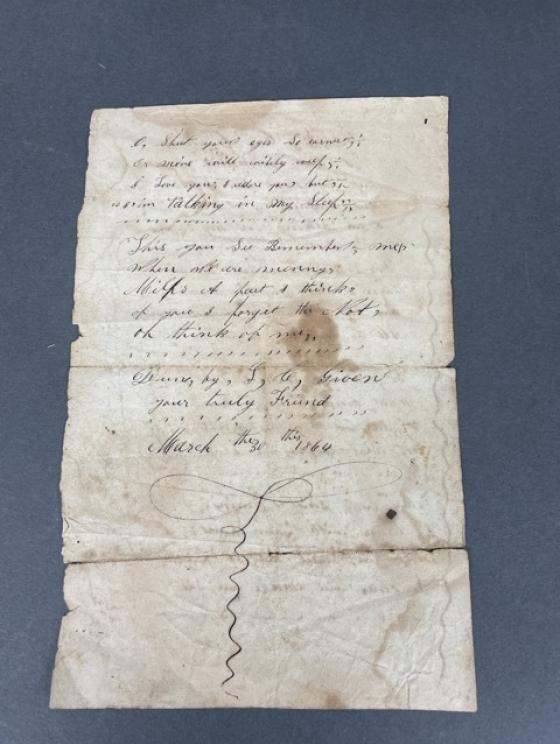 O, Shut your eyes So earnest,
Or mine will wildly weep,
I Love you, I adore you, but,
I am Talking in My Sleep,
This you See Remember, me,
When we are meny,
Mils A part I think,
of you I forget the Not,
oh think of me,
Dun, by, L, C, Given
your truly Friend
March the 30 this 1864